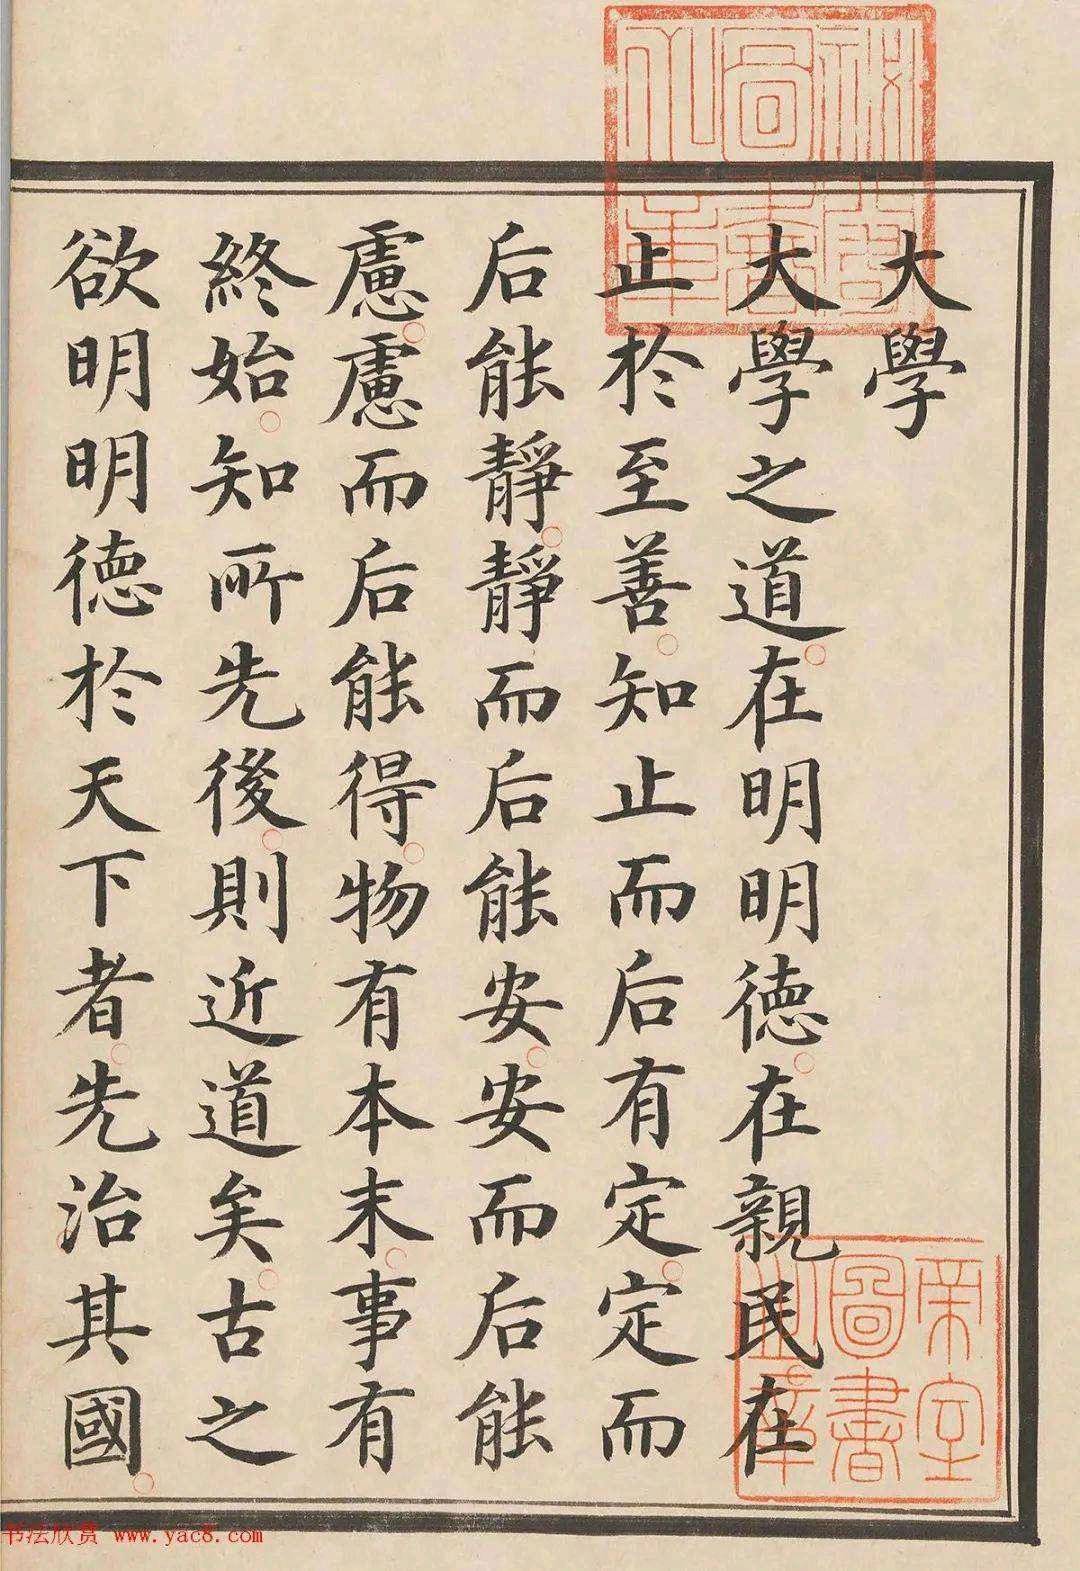 大學
大學之道。在明明德。在親民。在
止於至善。知止而后有定。定而
后能靜。靜而后能安。安而后能
慮。慮而后能得。物有本末。事有
終始。知所先後。則近道矣。古之
欲明明德於天下者。先治其國。
秘閣圖書之章
帝室圖書之章
书法欣赏 www.yac8.com